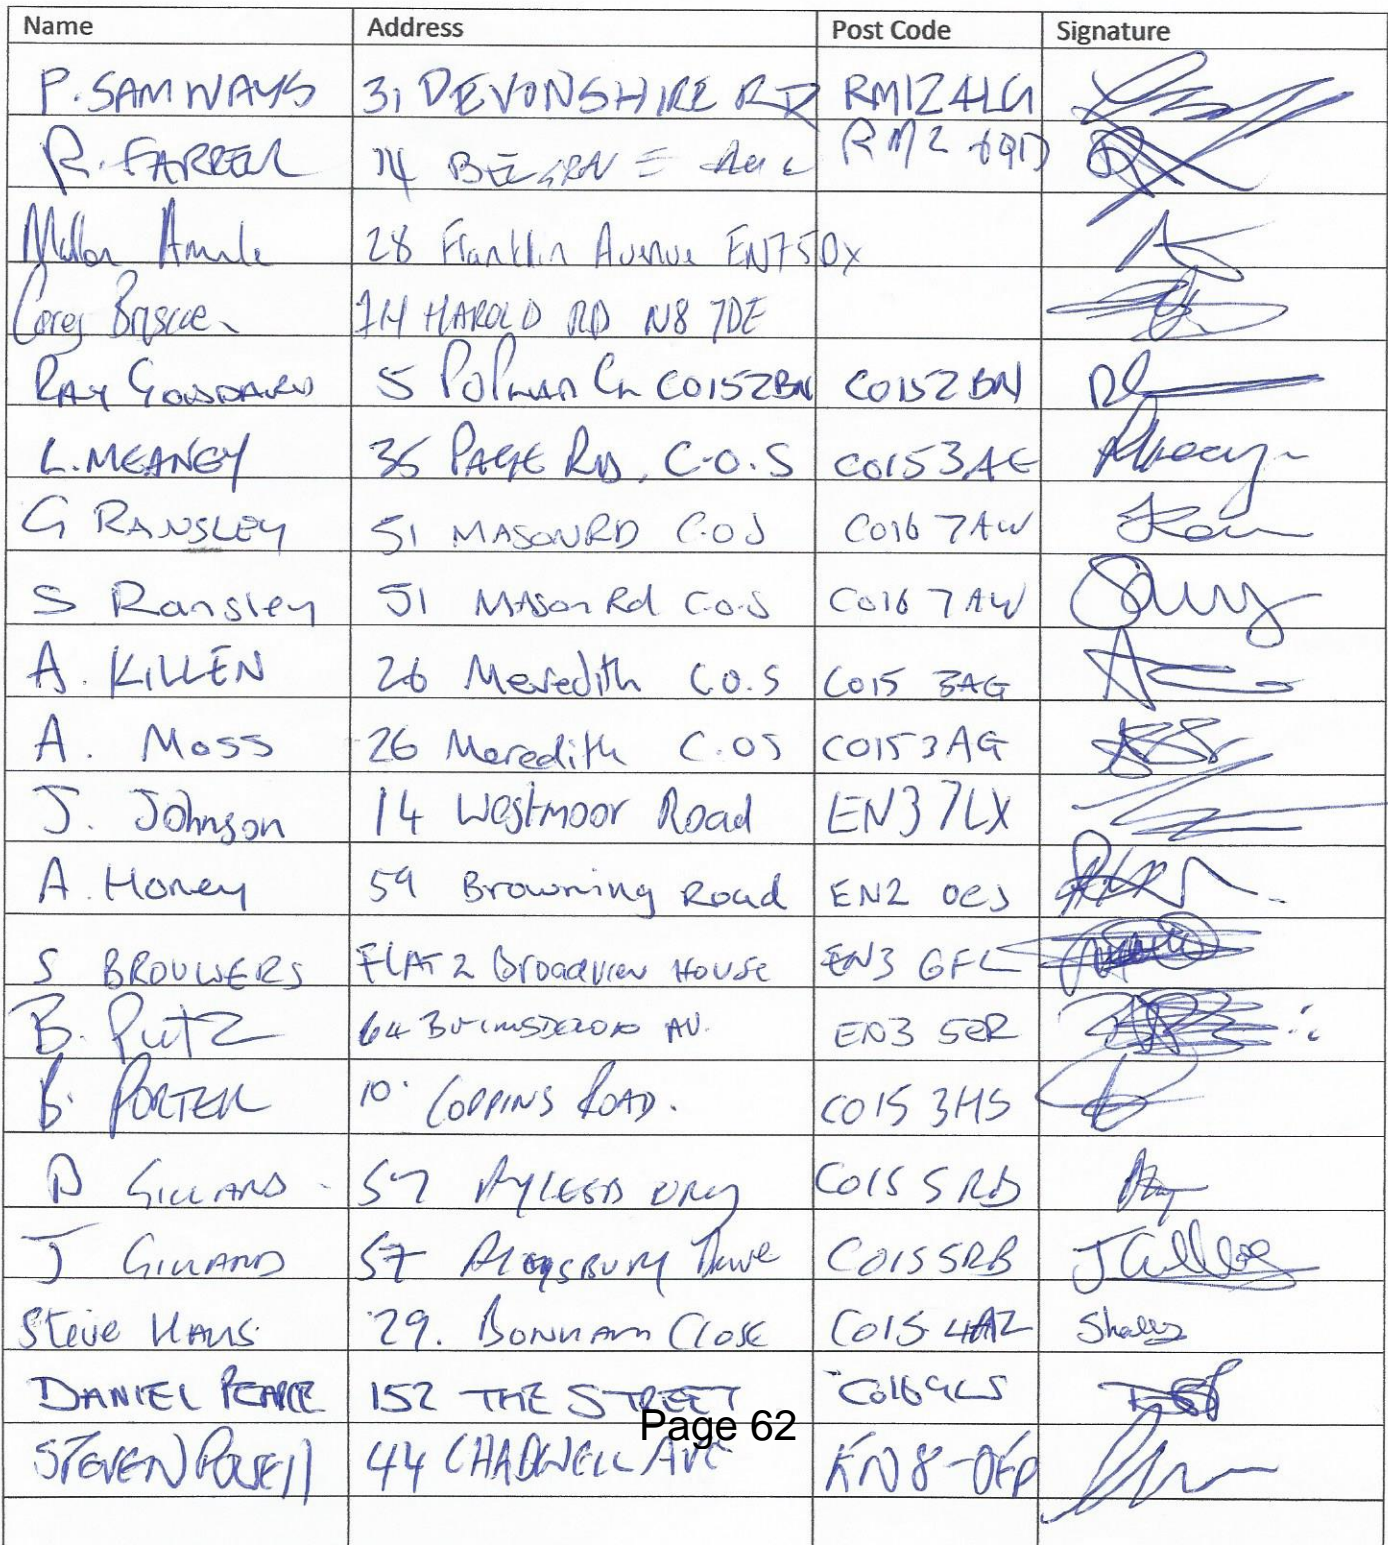 Name Address Post Code Signature
P. SAMWAYS 31 DEVONSHIRE RD RM12 4LG
R. FARRELL 14 RM2
28 Franklin Avenue EN7 5DX
Corey Briscoe 74 HAROLD RD N8 7DE
RAY GODDARD 5 CO152BN CO152BN
L. MEANEY 35 PAGE RD, C.O.S CO153AE
G RANSLEY 51 MASON RD C.O.S CO16 7AW
S Ransley 51 Mason Rd C.O.S CO16 7AW
A. KILLEN 26 Meredith C.O.S CO15 3AG
A. Moss 26 Meredith C.OS CO153AG
J. Johnson 14 Westmoor Road EN3 7LX
A. Honey 59 Browning Road EN2
S BROUWERS FLAT 2 Broadview House EN3 6FL
B. Putz 64 AV. EN3 5ER
B. PORTER 10 COPPINS ROAD. CO15 3HS
GILLARD 57 CO15 5RB
J GILLARD 57 Drive CO15 5RB J Gillard
Steve 29. BONHAM CLOSE CO15 4AZ
DANIEL PEARCE 152 THE STREET CO16 9LS
Page 62
STEVEN 44 CHADWELL AVE EN8-0FP